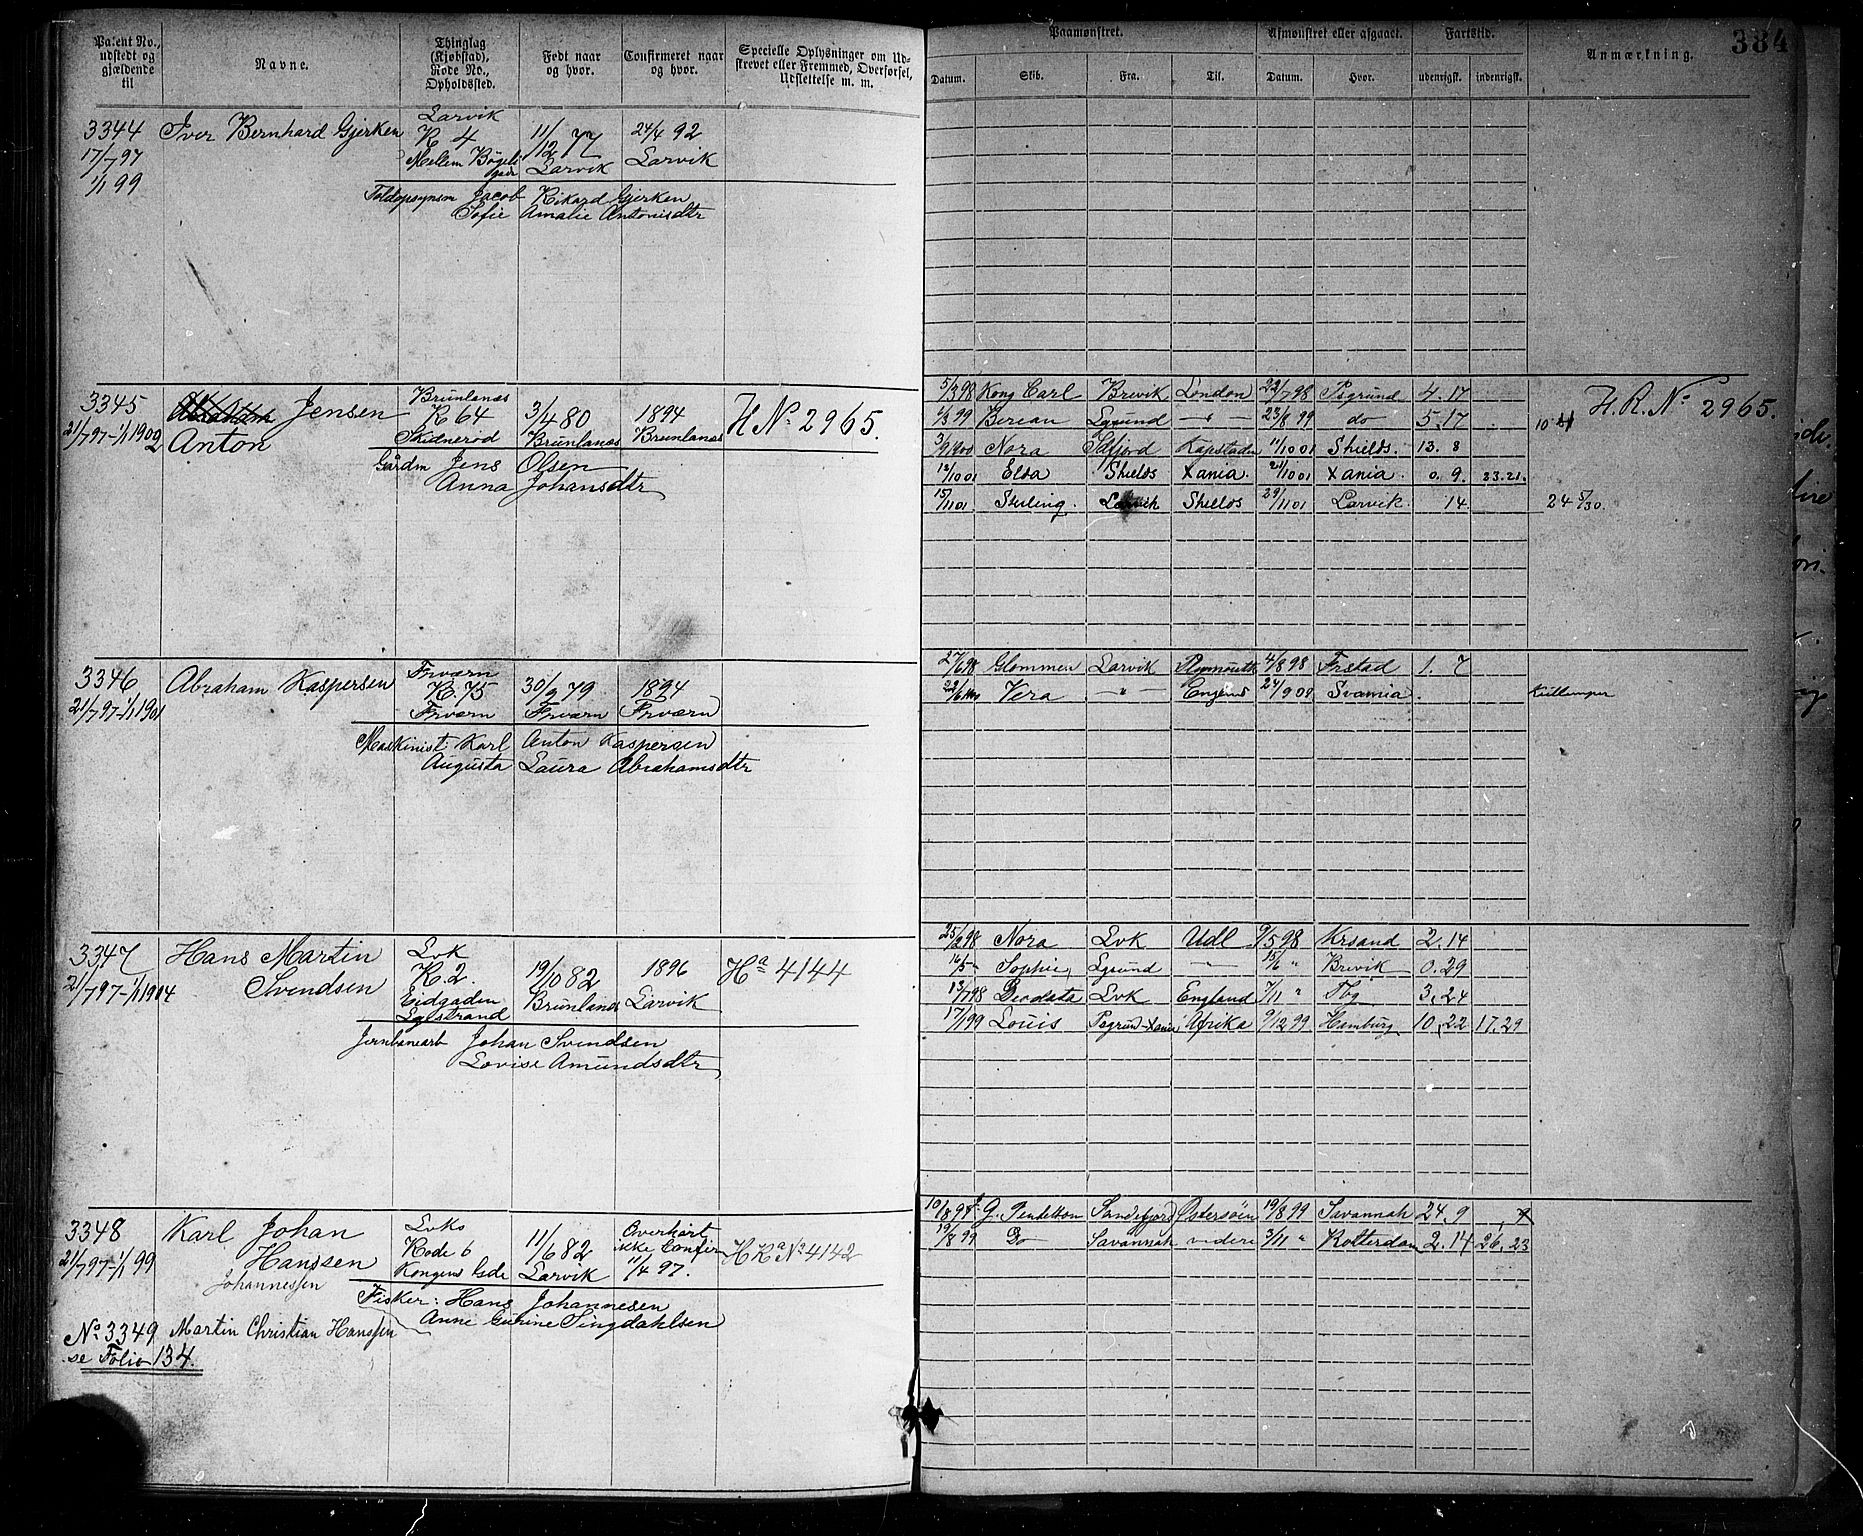 384
Patent No., udstedt og gjældende til
Navne.
Thinglag (Kjøbstad), Rode No., Opholdssted.
Født naar og hvor.
Confirmeret naar og hvor.
Specielle Oplysninger om Udskrevet eller Fremmed, Overførsel, Udslettelse m. m.
Paamønstret.
Afmønstret eller afgaaet.
Fartstid.
Anmærkning.
Datum. Skib. Fra. Til. Datum. Hvor. udenrigsk. indenrigsk.
3344 Iver Bernhard Gjerken Larvik
R 4 11/12 77 24/4 92
17/7 97 Mellem Bøgeli gade Larvik Larvik
1/1 99
Toldopsynsm Jacob Rikard Gjerken
Sofie Amalie Antonisdtr
3345 Jensen Brunlanæs
R 64 3/4 80 1894 H No 2965.
21/7 97-1/1 1902 Anton Skidnerød Brunlanæs Brunlanæs
Gårdm Jens Olsen
Anna Johansdtr
5/3 98 Kong Carl Brevik London 22/7 98 Psgrund 4. 17
H. R. No 2965.
Berean Lgrund - " - 23/8 99 do 5. 17
3/9 1900 Nora Sdfjord Kapstaden 11/10 01 Shields. 13. 8
12/10 01 Elsa Shields Xania. 21/10 01 Xania. 0. 9. 23.21.
15/11 01 Sterling. Larvik Shields 29/11 01 Larvik. 14. 24 5/30.
3346 Abraham Kaspersen Frværn
R. 75 30/9 79 1894
21/7 97-1/1 1901 Frværn Frværn Frværn
Maskinist: Karl Anton Kaspersen
Augusta Laura Abrahamsdtr
27/6 98 Glommen Larvik Plymouth 4/8 98 Frstad 1. 7
Vera - " - England 24/9 09 Svamia.
3347 Hans Martin Svendsen Lvk
R. 2 19/10 82 1896 Ha 4144
21/7 97-1/1 1904 Eidgaden Brunlanæs Larvik
Lgstrand
Jernbanearb Johan Svendsen
Lovise Amundsdtr
25/2 98 Nora Lvk Udl 9/5 98 Krsand 2. 14
16/5 " Sophie, Lgrund - " - 15/6 " Brevik 0. 29
13/7 98 Deodata Lvk England 7/11 " Tbg 3. 24
17/1 99 Louis Psgrund-Xania Afrika 9/12 99 Hamburg 10. 22 17. 29
3348 Karl Johan Hanssen Lvks
Rode 6 11/6 82 Overhørt ikke Confir
21/7 97-1/1 99 Kongens Gde Larvik 11/4 97. H Ra No 4142
Johannessen
Fisker: Hans Johannesen
Anne Gurine Singdahlsen
10/8 97 G. Pendelton Sandefjord Østersøen 19/8 99 Savannah 24. 9
19/8 99 Do Savannah videre 3/11 " Rotterdam 2. 14 26. 23
No 3349 Martin Christian Hanssen
se Folio 134.